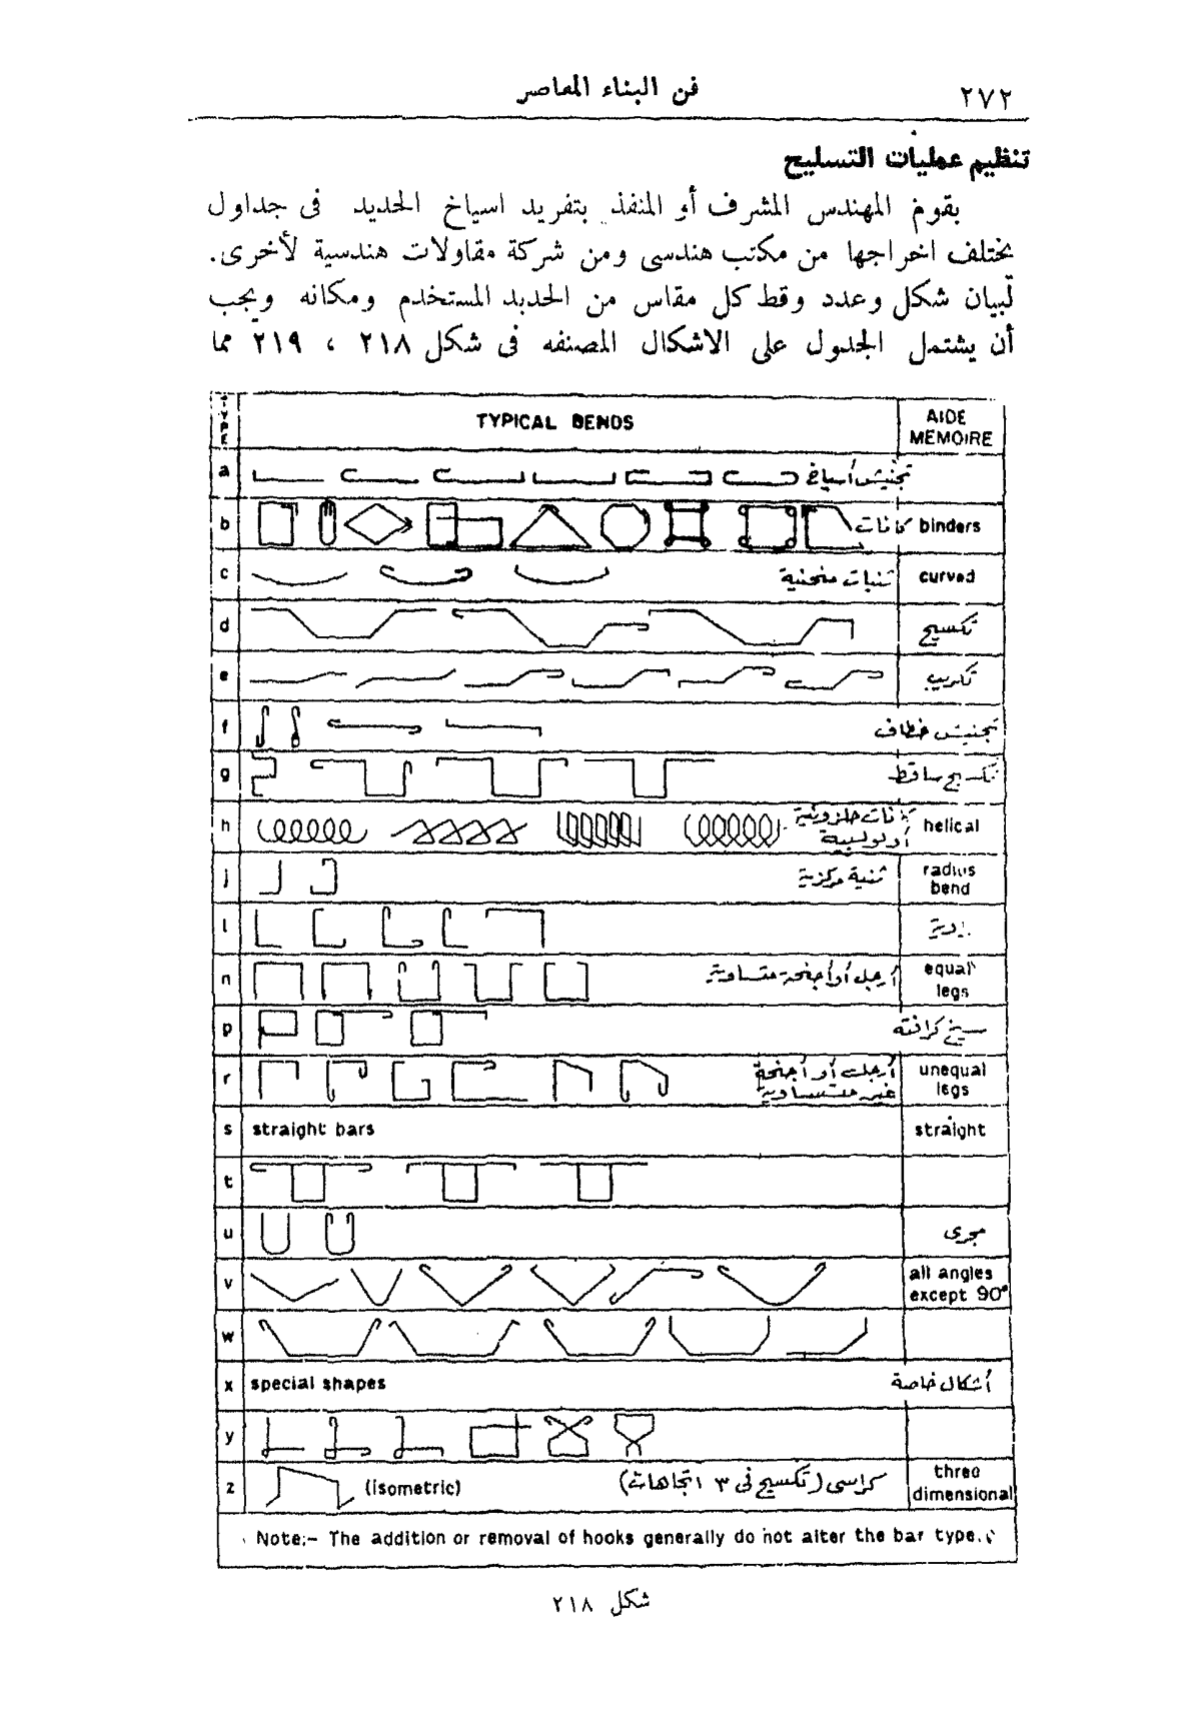 ٢٧٢
فن البناء المعاصر
تنظيم عمليات التسليح
يقوم المهندس المشرف أو المنفذ بتفريد اسياخ الحديد فى جداول
يختلف اخراجها من مكتب هندسى ومن شركة مقاولات هندسية لأخرى.
لبيان شكل وعدد وقط كل مقاس من الحديد المستخدم ومكانه ويجب
أن يشتمل الجدول على الاشكال المصنفه فى شكل ٢١٨ ، ٢١٩ مما
TYPE
TYPICAL BENDS
AIDE
MEMOIRE
a
تجنيش أسياخ
b
كانات binders
c
ثنيات منحنية
curved
d
تكسيح
e
تكريب
f
تجنيش خطاف
g
تكسيح ساقط
h
كانات حلزونية
أو لولبية
helical
j
ثنية مركزية
radius
bend
l
n
أرجل أو أجنحة متساوية
equal
legs
p
سيخ كرافته
r
أرجل أو أجنحة
غير متساوية
unequal
legs
s straight bars
straight
t
u
مجرى
v
all angles
except 90°
w
x special shapes
أشكال خاصة
y
z (isometric)
كراسى (تكسيح فى ٣ اتجاهات)
three
dimensional
Note:- The addition or removal of hooks generally do not alter the bar type.
شكل ٢١٨